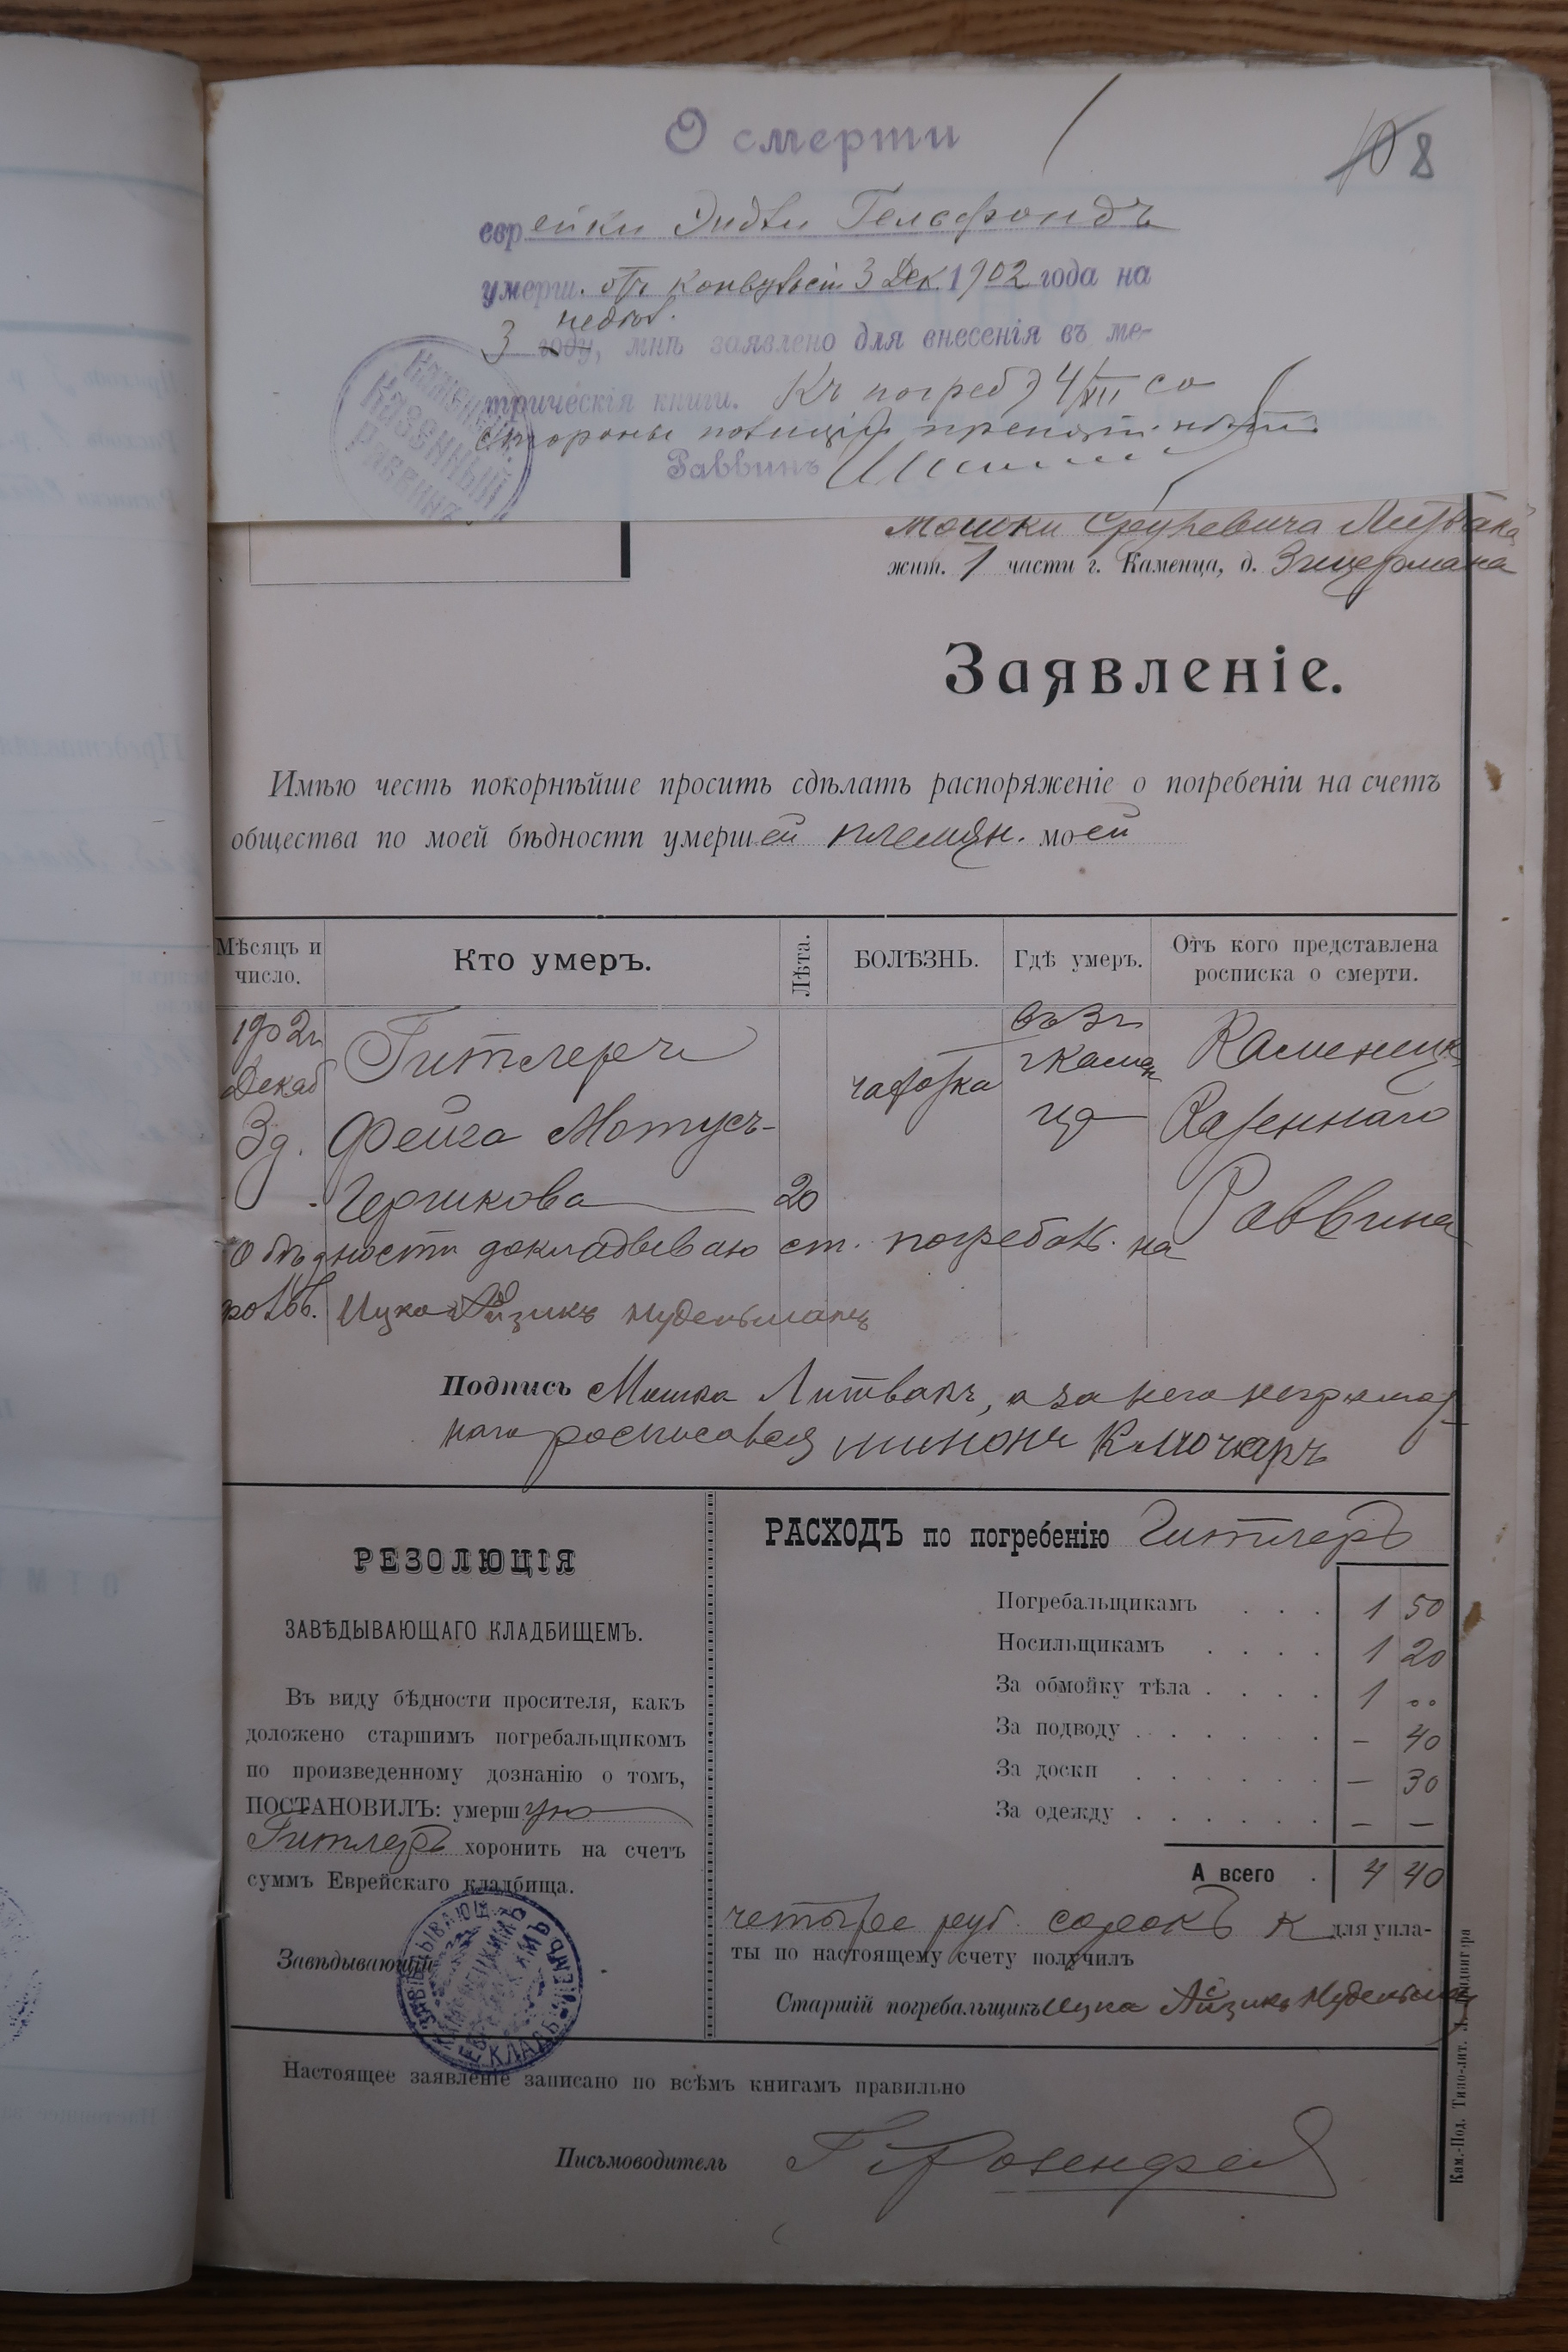 О смерти
8
еврейки Гельфондъ
умерш. отъ 3 Дек. 1902 года на
3 недѣл. году, мнѣ заявлено для внесенія въ ме-
трическія книги. Къ погреб. 4/XII со
стороны препят. нѣтъ
Раввинъ
Каменецкій
Казенный
Раввинъ
Мошки Литвака
жит. 1 части г. Каменца, д. Зицермана
Заявленіе.
Имѣю честь покорнѣйше просить сдѣлать распоряженіе о погребеніи на счетъ
общества по моей бѣдности умершей племян. моей
Мѣсяцъ и число.
Кто умеръ.
Лѣта.
БОЛѢЗНЬ.
Гдѣ умеръ.
Отъ кого представлена росписка о смерти.
1902 г. Декаб 3 д.
Гитлеръ
Фейга Мотусъ-
Гершкова
20
чахотка
въ г Камен
ца
Каменецк.
Казеннаго
Раввина
О бѣдности докладываю ст. погребальщ. на
Ицко Айзикъ Нудельманъ
Подпись Мошка Литвакъ, а за него неграмот
наго росписался Ключкаръ
РЕЗОЛЮЦІЯ
ЗАВѢДЫВАЮЩАГО КЛАДБИЩЕМЪ.
Въ виду бѣдности просителя, какъ
доложено старшимъ погребальщикомъ
по произведенному дознанію о томъ,
ПОСТАНОВИЛЪ: умершую
Гитлеръ хоронить на счетъ
суммъ Еврейскаго кладбища.
Завѣдывающій
РАСХОДЪ по погребенію Гитлеръ
Погребальщикамъ . . . 1 50
Носильщикамъ . . . . 1 20
За обмойку тѣла . . . . 1 ..
За подводу . . . . . . – 40
За доски . . . . . . – 30
За одежду . . . . . . – –
А всего . 4 40
четыре руб. сорокъ к для упла-
ты по настоящему счету получилъ
Старшій погребальщикъ Ицка Айзикъ Нудельманъ
Настоящее заявленіе записано по всѣмъ книгамъ правильно
Письмоводитель Розенфельд
Кам.-Под. Типо-лит.